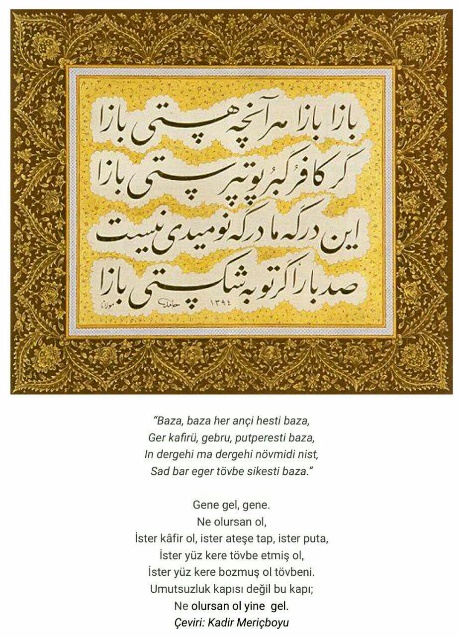 بازا بازا هرآنچه هستی بازا
گر کافر گبر و بت پرستی بازا
این درگه ما درگه نومیدی نیست
صد بار اگر توبه شکستی بازا
١٣٩٤
“Baza, baza her ançi hesti baza,
Ger kafirü, gebru, putperesti baza,
In dergehi ma dergehi növmidi nist,
Sad bar eger tövbe sikesti baza.”
Gene gel, gene.
Ne olursan ol,
İster kâfir ol, ister ateşe tap, ister puta,
İster yüz kere tövbe etmiş ol,
İster yüz kere bozmuş ol tövbeni.
Umutsuzluk kapısı değil bu kapı;
Ne olursan ol yine gel.
Çeviri: Kadir Meriçboyu